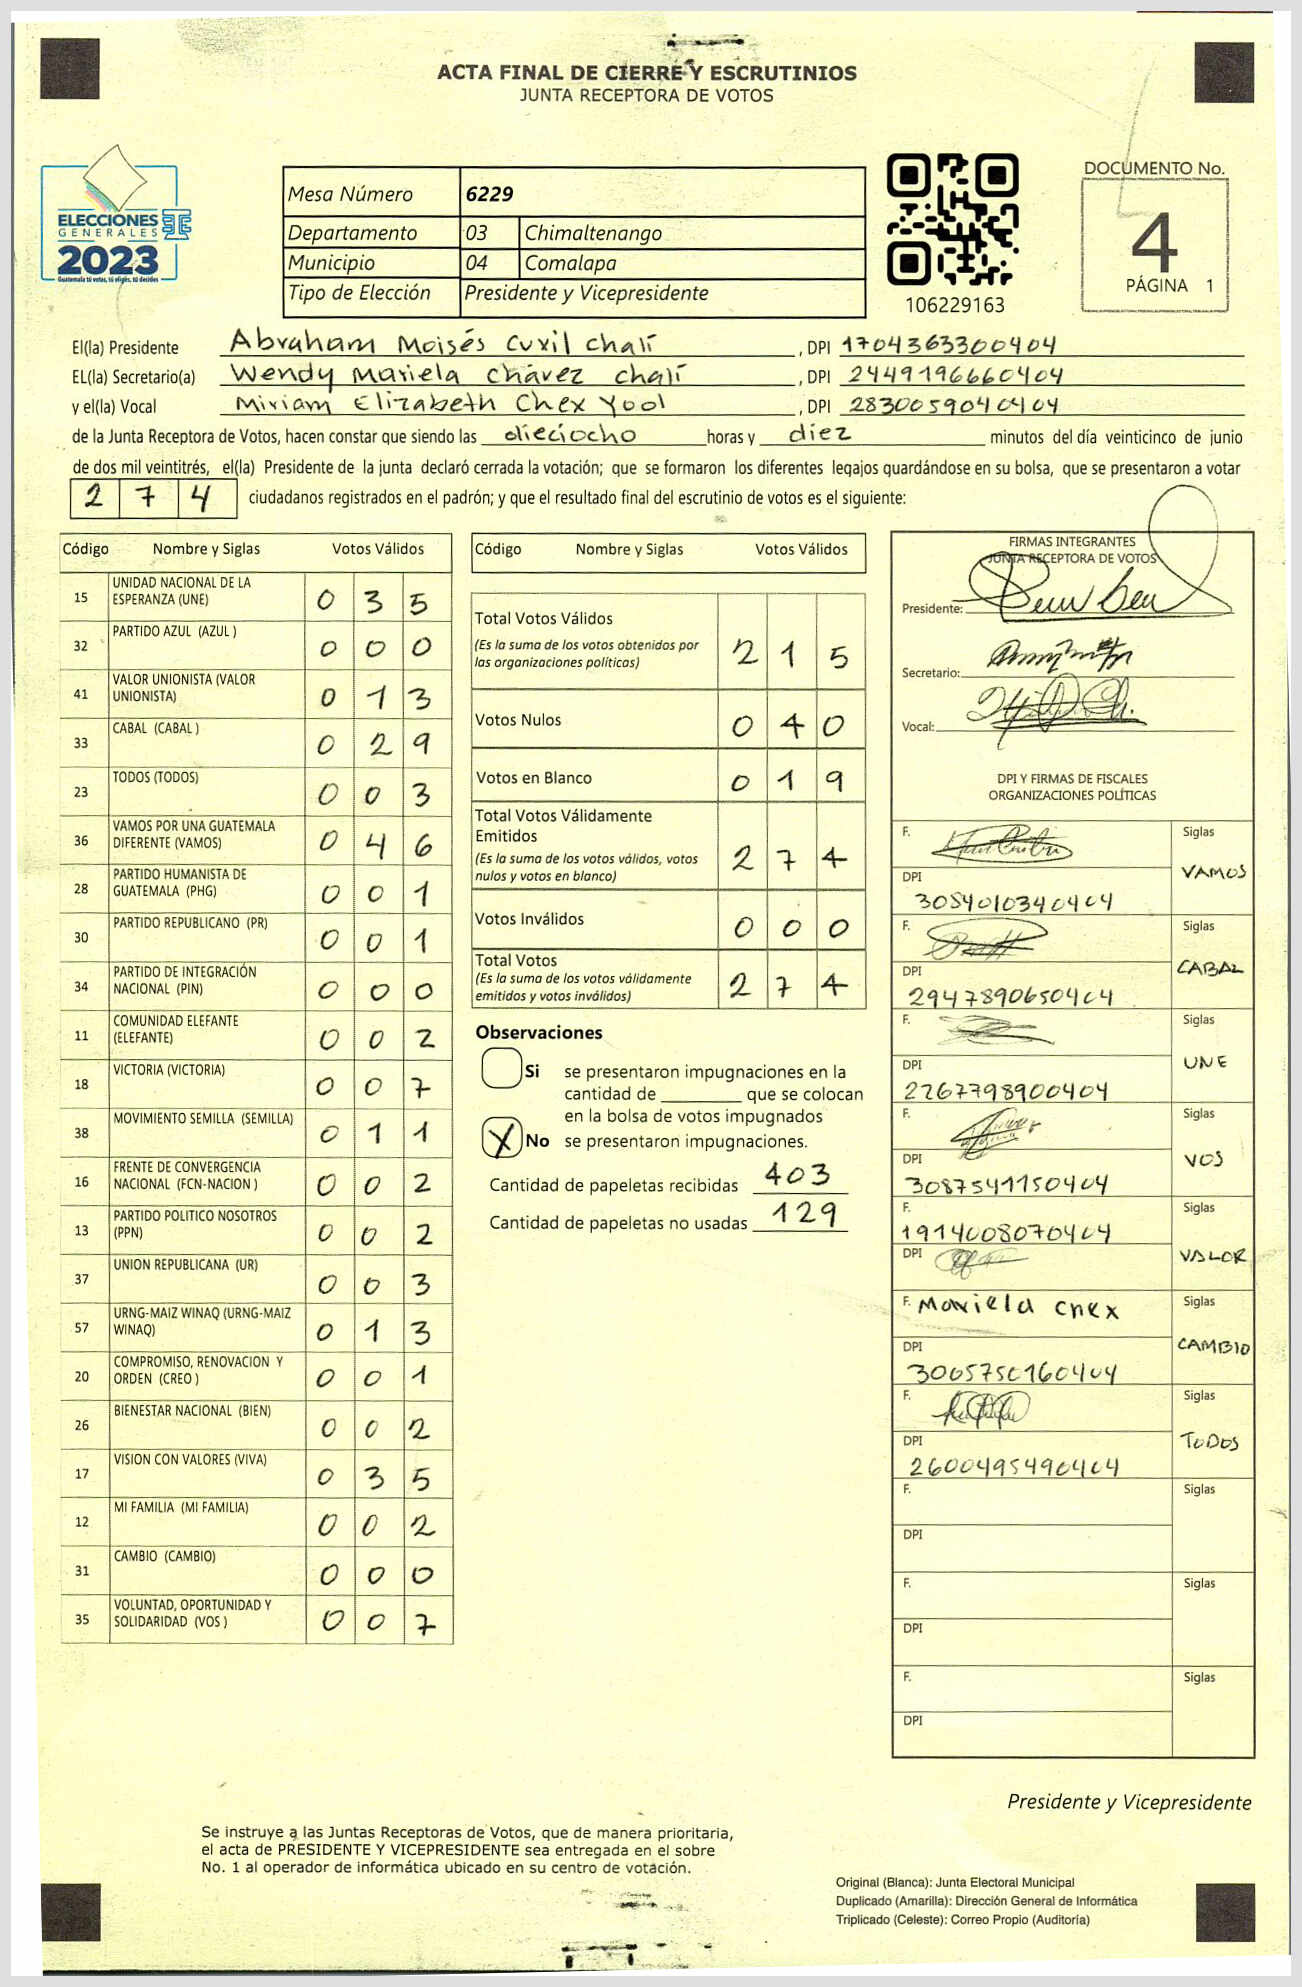 ACTA FINAL DE CIERRE Y ESCRUTINIOS
JUNTA RECEPTORA DE VOTOS
ELECCIONES
GENERALES
2023
Guatemala tú votas, tú eliges, tú decides
Mesa Número 6229
Departamento 03 Chimaltenango
Municipio 04 Comalapa
Tipo de Elección Presidente y Vicepresidente
106229163
DOCUMENTO No.
4
PÁGINA 1
El(la) Presidente Abraham Moisés Cuxil Chalí , DPI 1704363300404
EL(la) Secretario(a) Wendy Mariela Chávez Chalí , DPI 2449196660404
y el(la) Vocal Miriam Elizabeth Chex Yool , DPI 2830059040404
de la Junta Receptora de Votos, hacen constar que siendo las dieciocho horas y diez minutos del día veinticinco de junio
de dos mil veintitrés, el(la) Presidente de la junta declaró cerrada la votación; que se formaron los diferentes legajos guardándose en su bolsa, que se presentaron a votar
2 7 4 ciudadanos registrados en el padrón; y que el resultado final del escrutinio de votos es el siguiente:
Código Nombre y Siglas Votos Válidos
15 UNIDAD NACIONAL DE LA ESPERANZA (UNE) 0 3 5
32 PARTIDO AZUL (AZUL ) 0 0 0
41 VALOR UNIONISTA (VALOR UNIONISTA) 0 1 3
33 CABAL (CABAL ) 0 2 9
23 TODOS (TODOS) 0 0 3
36 VAMOS POR UNA GUATEMALA DIFERENTE (VAMOS) 0 4 6
28 PARTIDO HUMANISTA DE GUATEMALA (PHG) 0 0 1
30 PARTIDO REPUBLICANO (PR) 0 0 1
34 PARTIDO DE INTEGRACIÓN NACIONAL (PIN) 0 0 0
11 COMUNIDAD ELEFANTE (ELEFANTE) 0 0 2
18 VICTORIA (VICTORIA) 0 0 7
38 MOVIMIENTO SEMILLA (SEMILLA) 0 1 1
16 FRENTE DE CONVERGENCIA NACIONAL (FCN-NACION ) 0 0 2
13 PARTIDO POLITICO NOSOTROS (PPN) 0 0 2
37 UNION REPUBLICANA (UR) 0 0 3
57 URNG-MAIZ WINAQ (URNG-MAIZ WINAQ) 0 1 3
20 COMPROMISO, RENOVACION Y ORDEN (CREO ) 0 0 1
26 BIENESTAR NACIONAL (BIEN) 0 0 2
17 VISION CON VALORES (VIVA) 0 3 5
12 MI FAMILIA (MI FAMILIA) 0 0 2
31 CAMBIO (CAMBIO) 0 0 0
35 VOLUNTAD, OPORTUNIDAD Y SOLIDARIDAD (VOS ) 0 0 7
Código Nombre y Siglas Votos Válidos
Total Votos Válidos
(Es la suma de los votos obtenidos por
las organizaciones políticas) 2 1 5
Votos Nulos 0 4 0
Votos en Blanco 0 1 9
Total Votos Válidamente
Emitidos
(Es la suma de los votos válidos, votos
nulos y votos en blanco) 2 7 4
Votos Inválidos 0 0 0
Total Votos
(Es la suma de los votos válidamente
emitidos y votos inválidos) 2 7 4
Observaciones
Si se presentaron impugnaciones en la
cantidad de ________ que se colocan
en la bolsa de votos impugnados
X No se presentaron impugnaciones.
Cantidad de papeletas recibidas 403
Cantidad de papeletas no usadas 129
FIRMAS INTEGRANTES
JUNTA RECEPTORA DE VOTOS
Presidente:
Secretario:
Vocal:
DPI Y FIRMAS DE FISCALES
ORGANIZACIONES POLÍTICAS
F. Siglas
VAMOS
DPI
3084010340404
F. Siglas
CABAL
DPI
2947890650404
F. Siglas
UNE
DPI
2267798900404
F. Siglas
VOS
DPI
3087541150404
F. Siglas
1914008070404
DPI VALOR
F. Mariela Chex Siglas
CAMBIO
DPI
3065750160404
F. Siglas
TODOS
DPI
2600495490404
F. Siglas
DPI
F. Siglas
DPI
F. Siglas
DPI
Presidente y Vicepresidente
Se instruye a las Juntas Receptoras de Votos, que de manera prioritaria,
el acta de PRESIDENTE Y VICEPRESIDENTE sea entregada en el sobre
No. 1 al operador de informática ubicado en su centro de votación.
Original (Blanca): Junta Electoral Municipal
Duplicado (Amarilla): Dirección General de Informática
Triplicado (Celeste): Correo Propio (Auditoría)